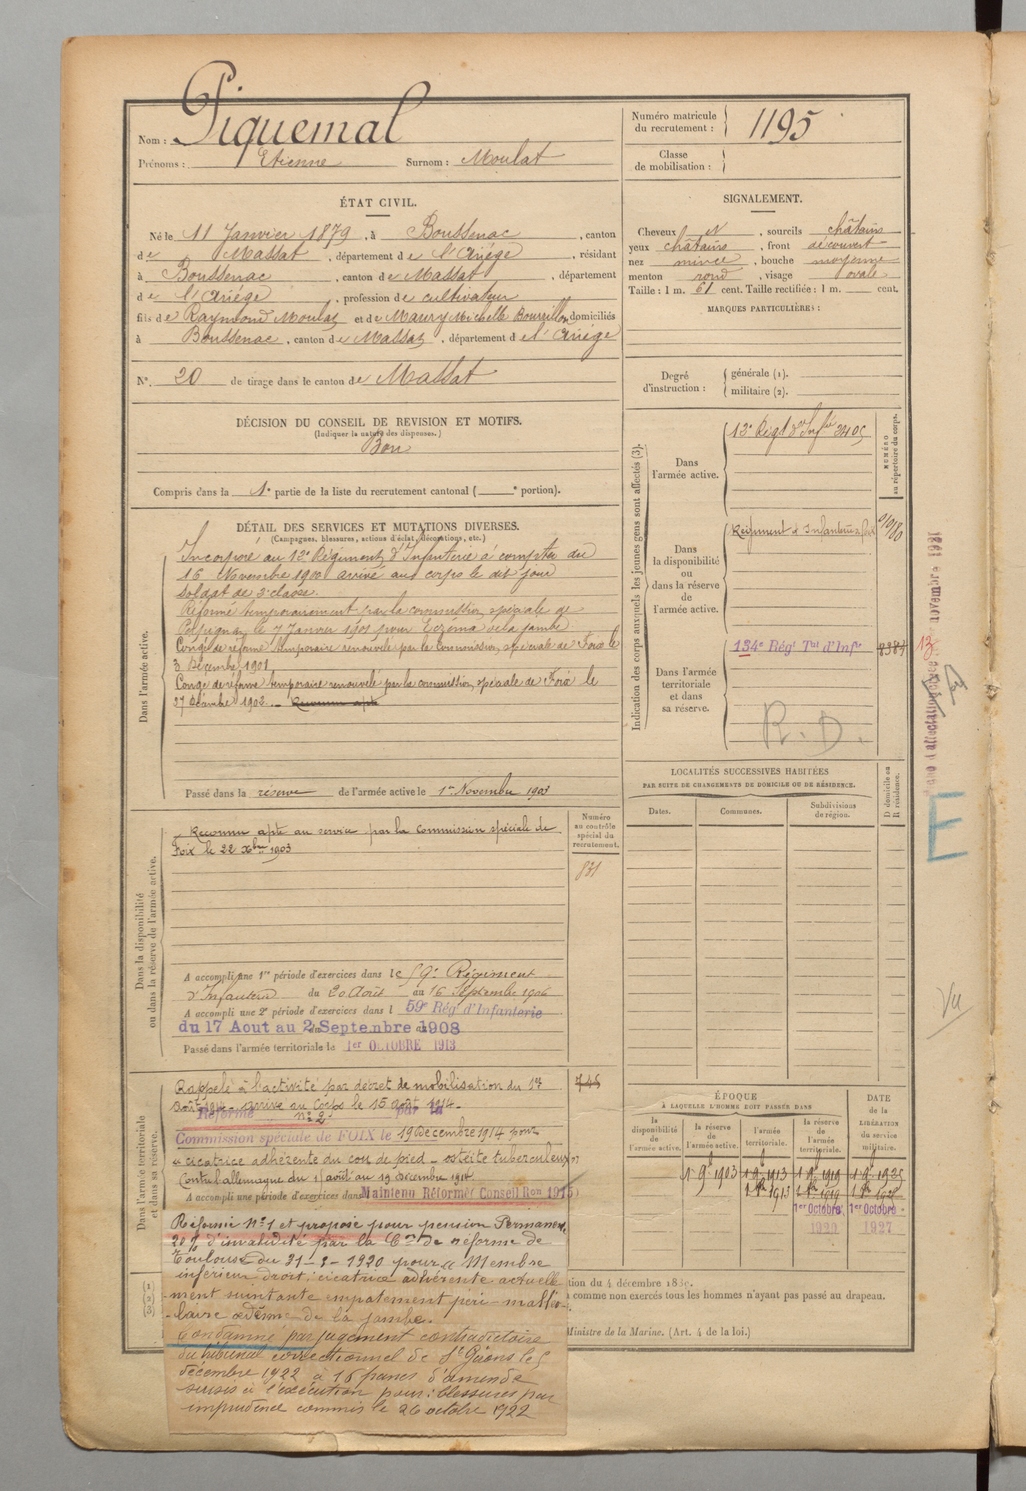 Nom : Piquemal
Prénoms : Etienne Surnom : Moulat
Numéro matricule du recrutement : 1195
Classe de mobilisation :
ÉTAT CIVIL.
Né le 11 Janvier 1879, à Boussenac, canton
de Massat, département de l'Ariége, résidant
à Boussenac, canton de Massat, département
de l'Ariége, profession de cultivateur
fils de Raymond Moulat et de Maury Michelle Bourrillon, domiciliés
à Boussenac, canton de Massat, département de l'Ariége
N°. 20 de tirage dans le canton de Massat
SIGNALEMENT.
Cheveux et, sourcils châtains
yeux châtains, front découvert
nez mince, bouche moyenne
menton rond, visage ovale
Taille : 1 m. 61 cent. Taille rectifiée : 1 m. cent.
MARQUES PARTICULIÈRES :
Degré d'instruction : générale (1).
militaire (2).
DÉCISION DU CONSEIL DE REVISION ET MOTIFS.
(Indiquer la nature des dispenses.)
Bon
Compris dans la 1e partie de la liste du recrutement cantonal ( e portion).
DÉTAIL DES SERVICES ET MUTATIONS DIVERSES.
(Campagnes, blessures, actions d'éclat, décorations, etc.)
Dans l'armée active.
Incorporé au 12e Régiment d'Infanterie à compter du
16 Novembre 1900 arrivé au corps le dit jour
soldat de 2e classe.
Réformé temporairement par la commission spéciale de
Perpignan le 7 Janvier 1901 pour Eczéma de la jambe
Congé de réforme temporaire renouvelé par la Commission spéciale de Foix le
3 Décembre 1901
Congé de réforme temporaire renouvelé par la commission spéciale de Foix le
27 Décembre 1902. Reconnu apte
Passé dans la réserve de l'armée active le 1er Novembre 1903
Indication des corps auxquels les jeunes gens sont affectés (3).
NUMÉRO au répertoire du corps.
Dans l'armée active.
12e Régt d'Infrie 2405
Dans la disponibilité ou dans la réserve de l'armée active.
Régiment d'Infanterie Foix
Dans l'armée territoriale et dans sa réserve.
134e Régt Tal d'Infie
R. D.
LOCALITÉS SUCCESSIVES HABITÉES
PAR SUITE DE CHANGEMENTS DE DOMICILE OU DE RÉSIDENCE.
Dates. Communes. Subdivisions de région. D domicile ou R résidence.
Dans la disponibilité ou dans la réserve de l'armée active.
Numéro au contrôle spécial du recrutement.
831
Reconnu apte au service par la Commission spéciale de
Foix le 22 Xbre 1903
A accompli une 1re période d'exercices dans le 59e Régiment
d'Infanterie du 20 Août au 16 Septembre 1906
A accompli une 2e période d'exercices dans l 59e Rég. d'Infanterie
du 17 Aout au 2 Septembre 1908
Passé dans l'armée territoriale le 1er OCTOBRE 1913
Dans l'armée territoriale et dans sa réserve.
745
Rappelé à l'activité par décret de mobilisation du 1er
Août 1914 arrivé au Corps le 15 Août 1914.
Réformé n° 2 par la
Commission spéciale de FOIX le 19 Décembre 1914 pour
"cicatrice adhérente du cou de pied - ostéite tuberculeuse"
Contre l'allemagne du août au 19 Décembre 1914
A accompli une période d'exercices dans Maintenu Réformé (Conseil Ron 1915)
Réformé N°1 et proposé pour pension Permanente
20% d'invalidité par la Con de réforme de
Toulouse du 1920 pour "Membre
inférieur droit, cicatrice adhérente actuelle-
ment suintante empatement péri-malléo-
laire œdème de la jambe.
Condamné par jugement contradictoire
du tribunal correctionnel de St Girons le 5
décembre 1922 à 16 francs d'amende
sursis à l'exécution pour : blessures par
imprudence commis le 26 octobre 1922
ÉPOQUE
À LAQUELLE L'HOMME DOIT PASSER DANS
DATE DE LA LIBÉRATION du service militaire.
la disponibilité de l'armée active. la réserve de l'armée active. l'armée territoriale. la réserve de l'armée territoriale.
1 9bre 1903 1 9bre 1913 1 9bre 1919 1 9bre 1925
1er Octobre 1920 1er Octobre 1927
tion du 4 décembre 1889.
comme non exercés tous les hommes n'ayant pas passé au drapeau.
Ministre de la Marine. (Art. 4 de la loi.)
E
Vu